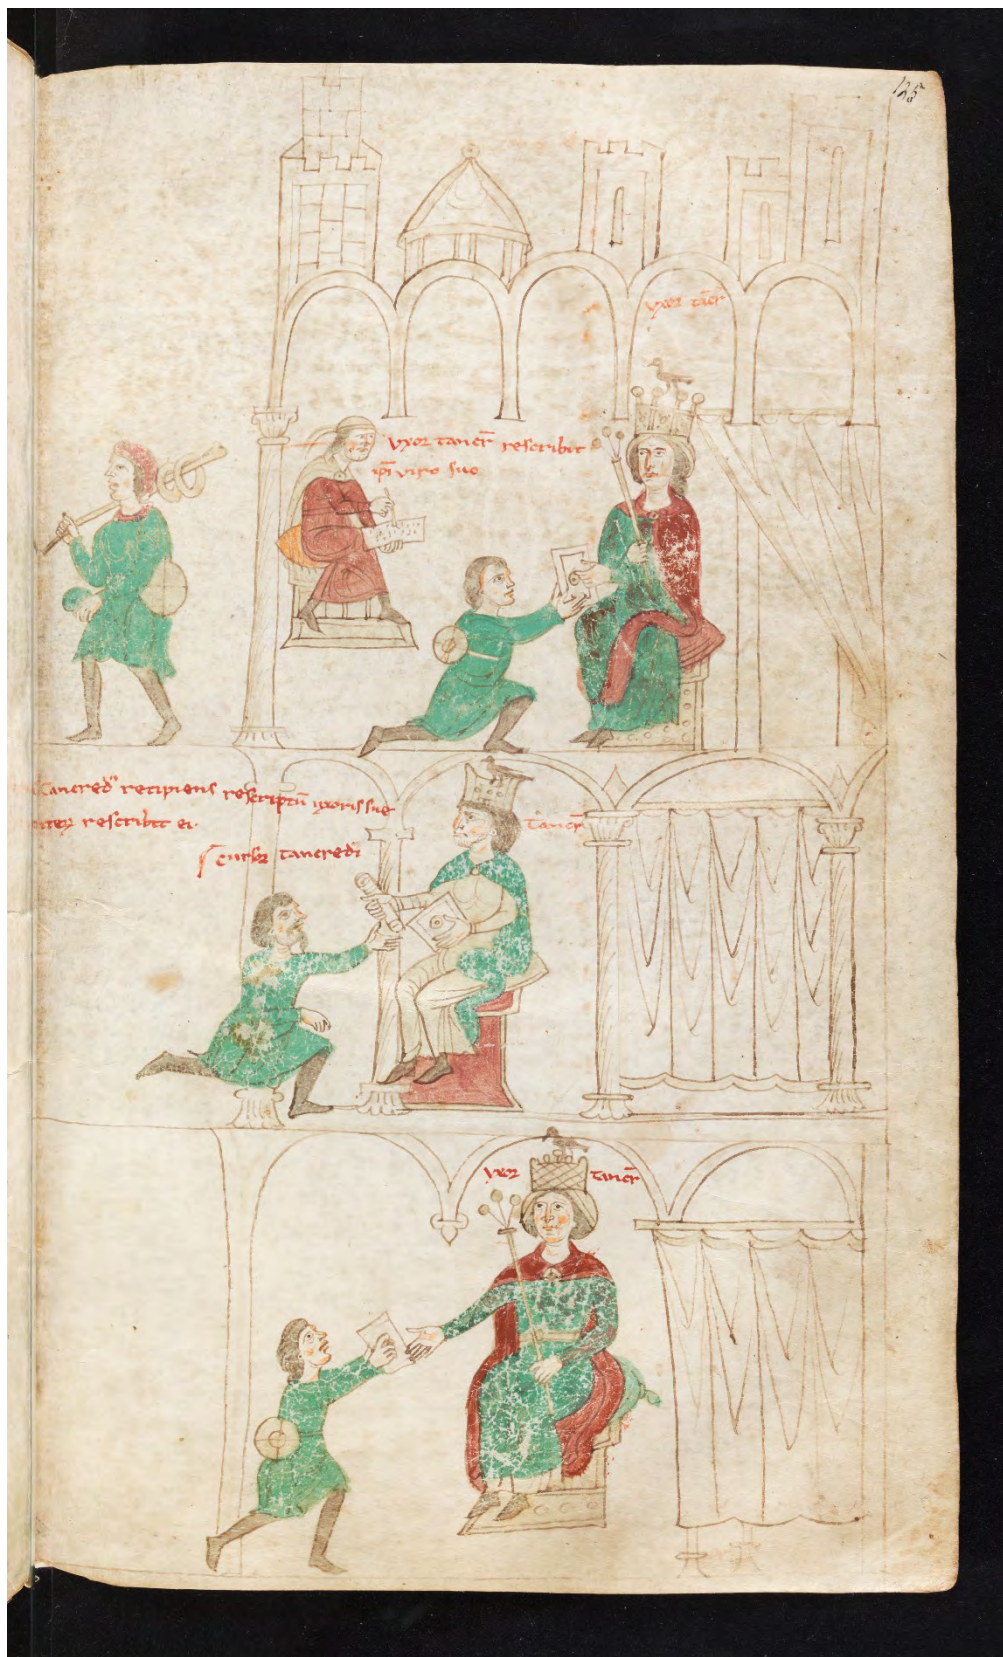 125
uxor tancͬ
Uxor tancͬ rescribit
ip̄i viro suo
Tancred᷒ recipiens rescriptū uxoris sue
iteꝝ rescribit ei·
Cursor tancredi
Tancͬ
uxor tancͬ